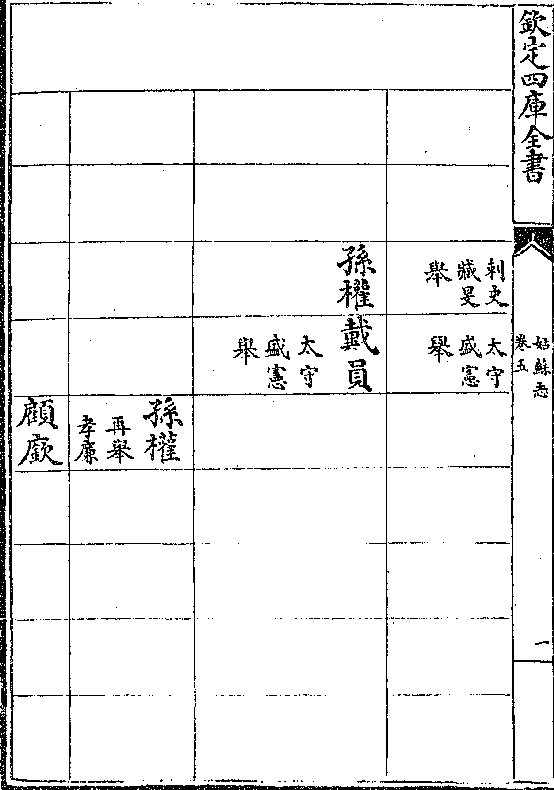 欽定四庫全書
姑蘇志
卷五
一
刺史
臧旻
舉
太守
盛憲
舉
孫權
戴員
太守
盛憲
舉
孫權
再舉
孝廉
顧廞